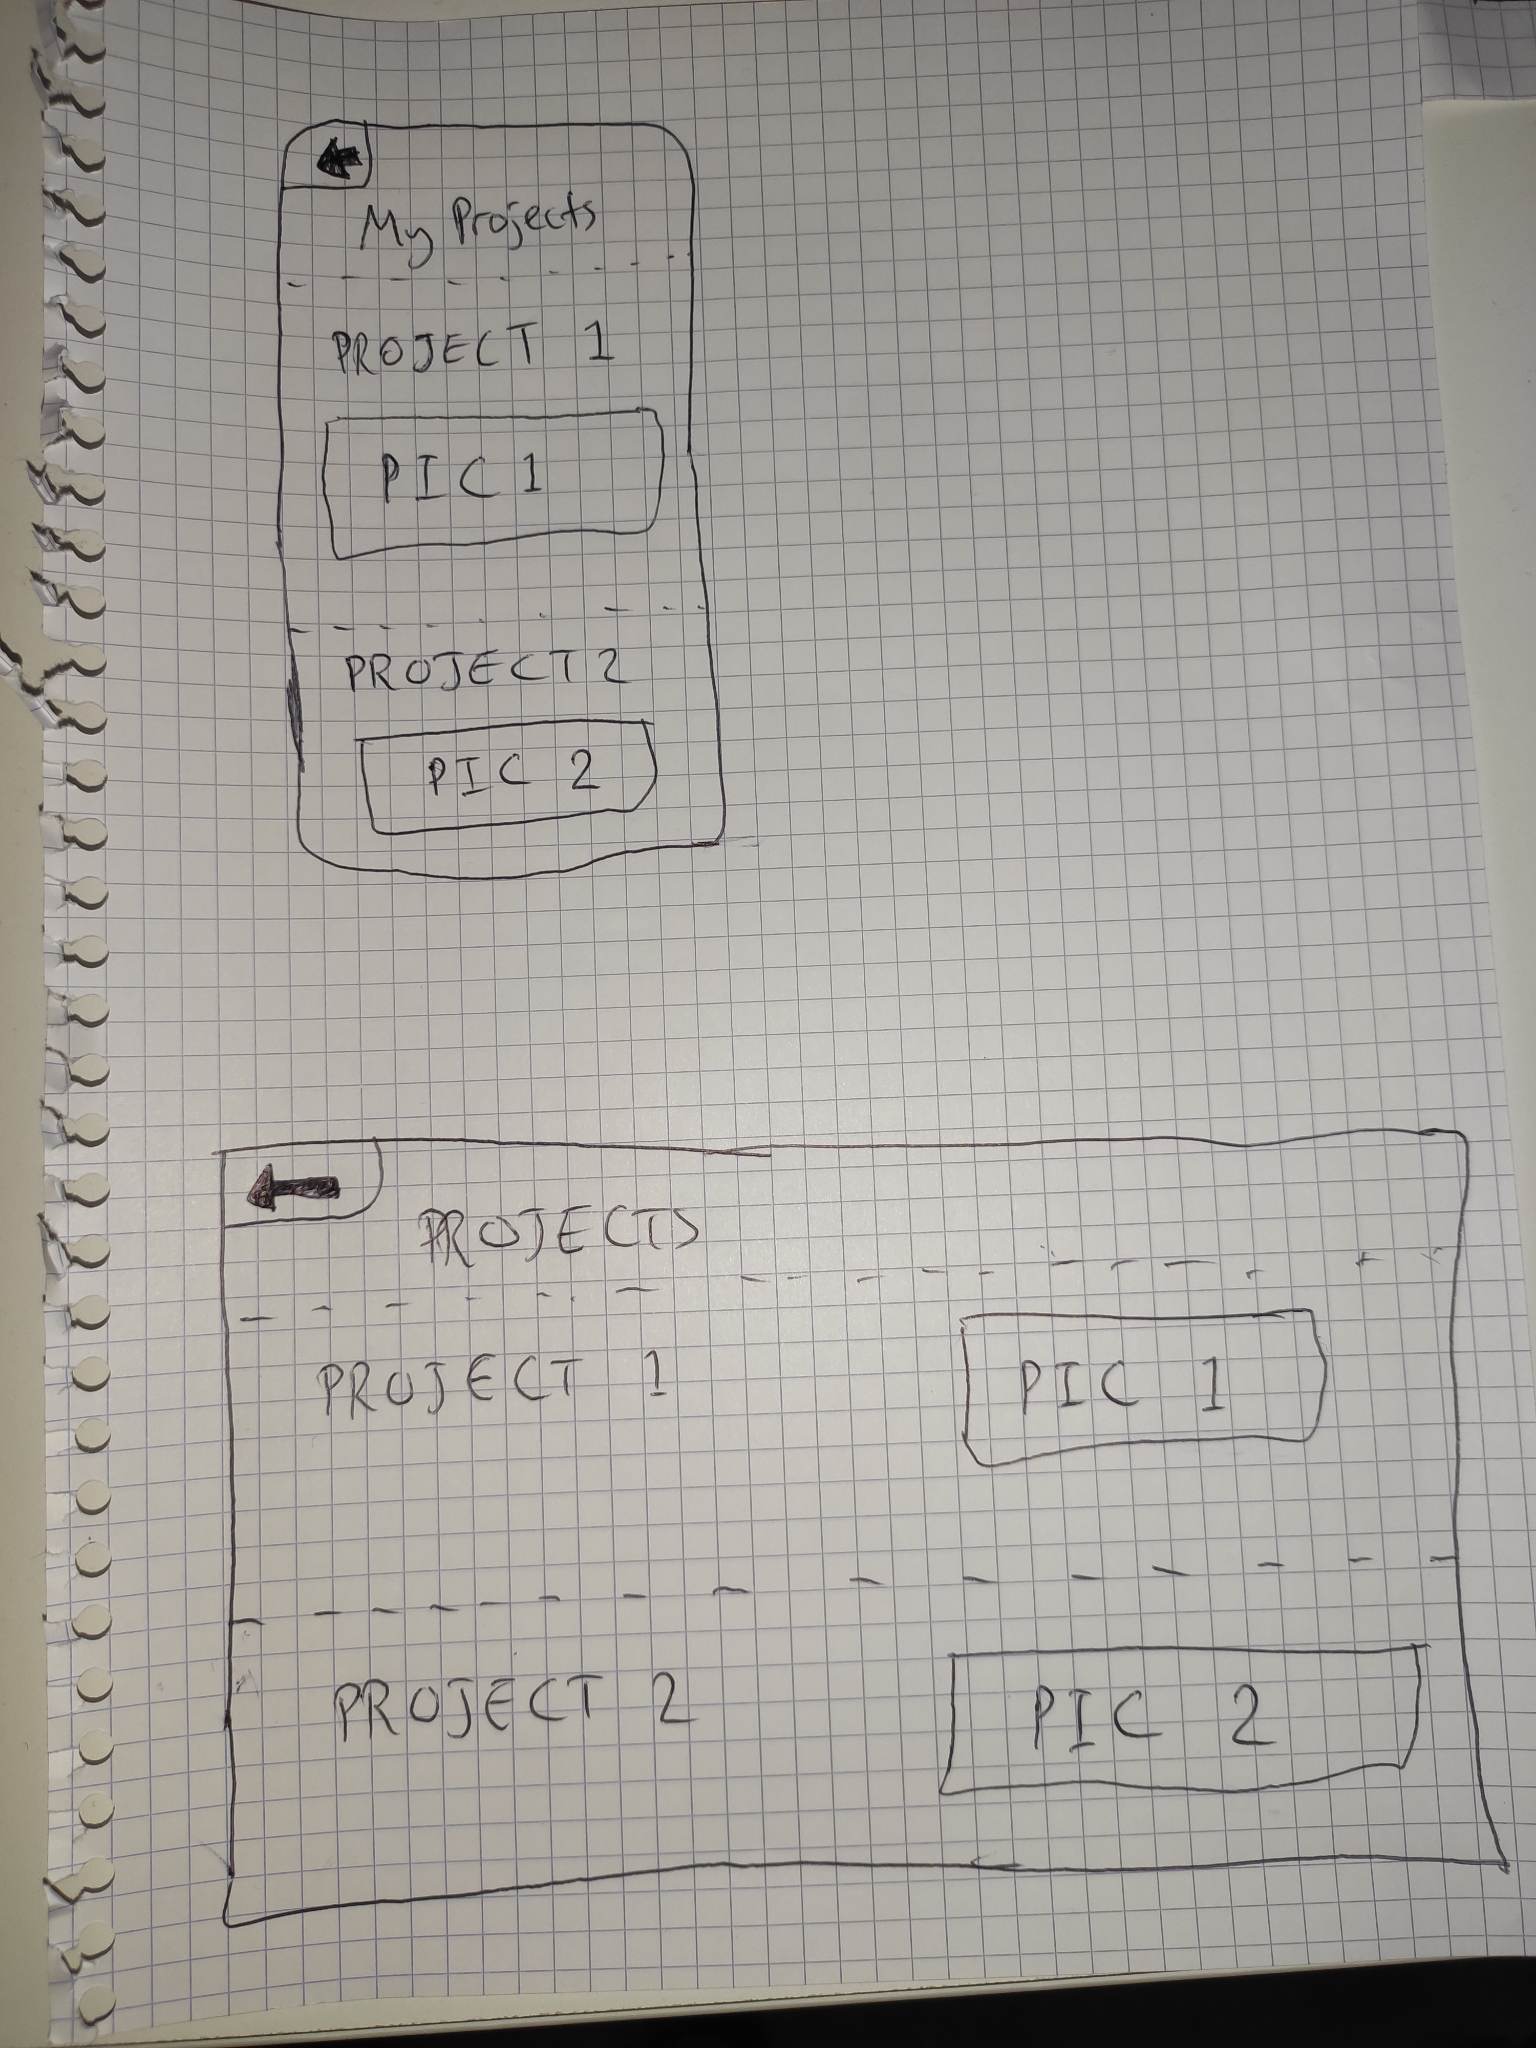 My Projects
PROJECT 1
PIC 1
PROJECT 2
PIC 2
PROJECTS
PROJECT 1
PIC 1
PROJECT 2
PIC 2